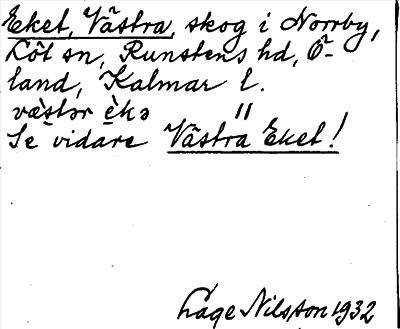 Eket, Västra, skog i Norrby,
Löt sn, Runstens hd, Ö-
land, Kalmar l.
väster èkə "
Se vidare Västra Eket!
Lage Nilsson 1932